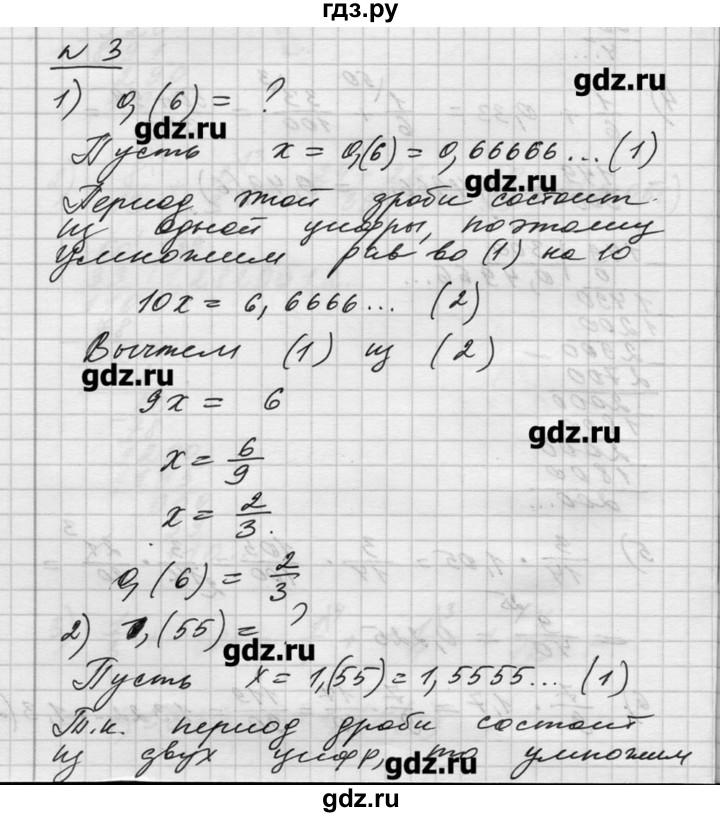 гдз.ру
№ 3
gdz.ru
1) 0,(6) = ?
gdz.ru
Пусть x = 0,(6) = 0,66666... (1)
gdz.ru
Период этой дроби состоит
из одной цифры, поэтому
умножим рав во (1) на 10
10x = 6,6666... (2)
Вычтем (1) из (2)
gdz.ru
9x = 6
gdz.ru
x = 6/9
x = 2/3.
0,(6) = 2/3
2) 1,(55) = ?
gdz.ru
Пусть x = 1,(55) = 1,5555... (1)
Т.к. период дроби состоит
из двух цифр, то умножим
gdz.ru
gdz.ru